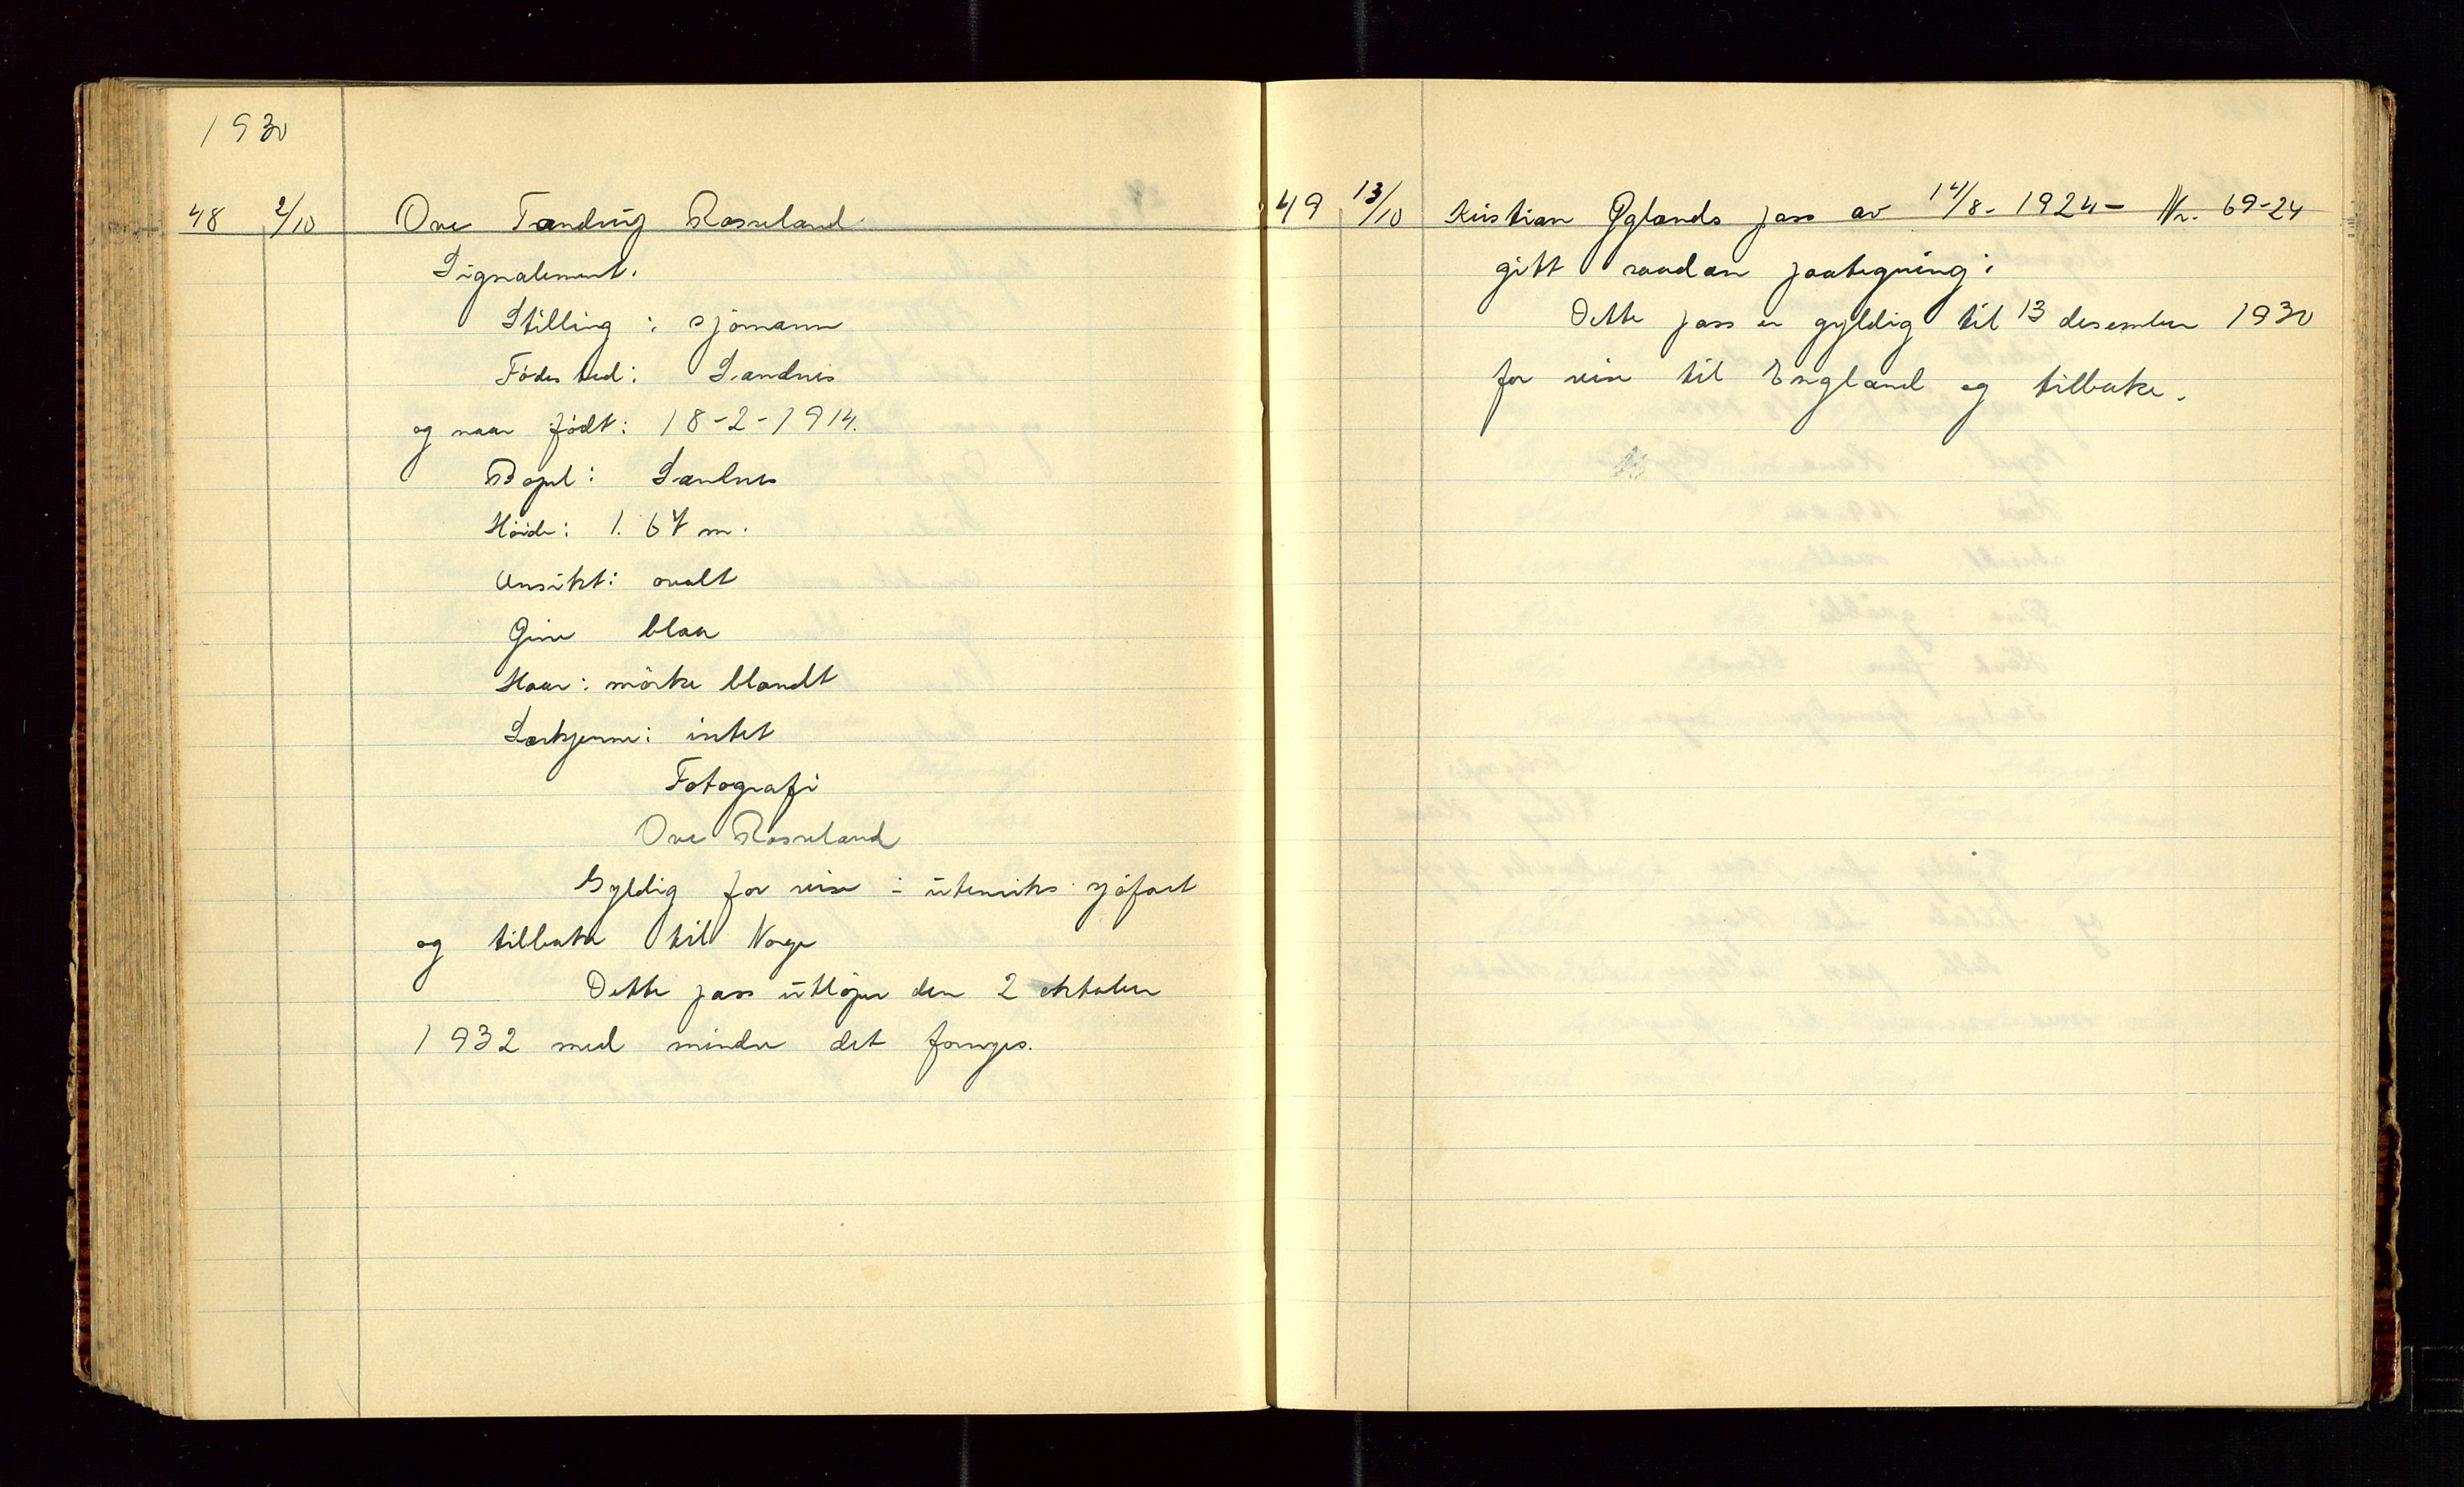 1930
48 2/10 Ove Tandrüg Rosseland
Signalement.
Stilling: sjömann
Födested: Sandnes
og naar född: 18-2-1914.
Bopel: Sandnes
Höide: 1.67 m.
Ansikt: ovalt
Øine blaa
Haar: mörke blondt
Særkjenne: intet
Fotografi
Ove Rosseland
Gyldig for reise i ütenriks sjöfart
og tilbake til Norge
Dette pass ütlöper den 2 oktober
1932 med mindre det fornyes.
49 13/10 Kristian Øglands pass av 14/8-1924- Nr. 69-24
gitt saadan paategning:
Dette pass er gyldig til 13 desember 1930
for reise til England og tilbake.